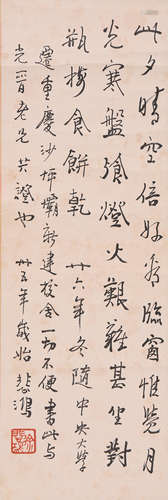 此夕晴空倍好看臨窗惟覽月
光寒盤飱燈火艱難甚坐對
瓶梅食餅乾
廿六年冬隨中央大學
遷重慶沙坪壩新建校舍一切不便書此与
光晉老兄共證也 卅五年歲始 悲鴻